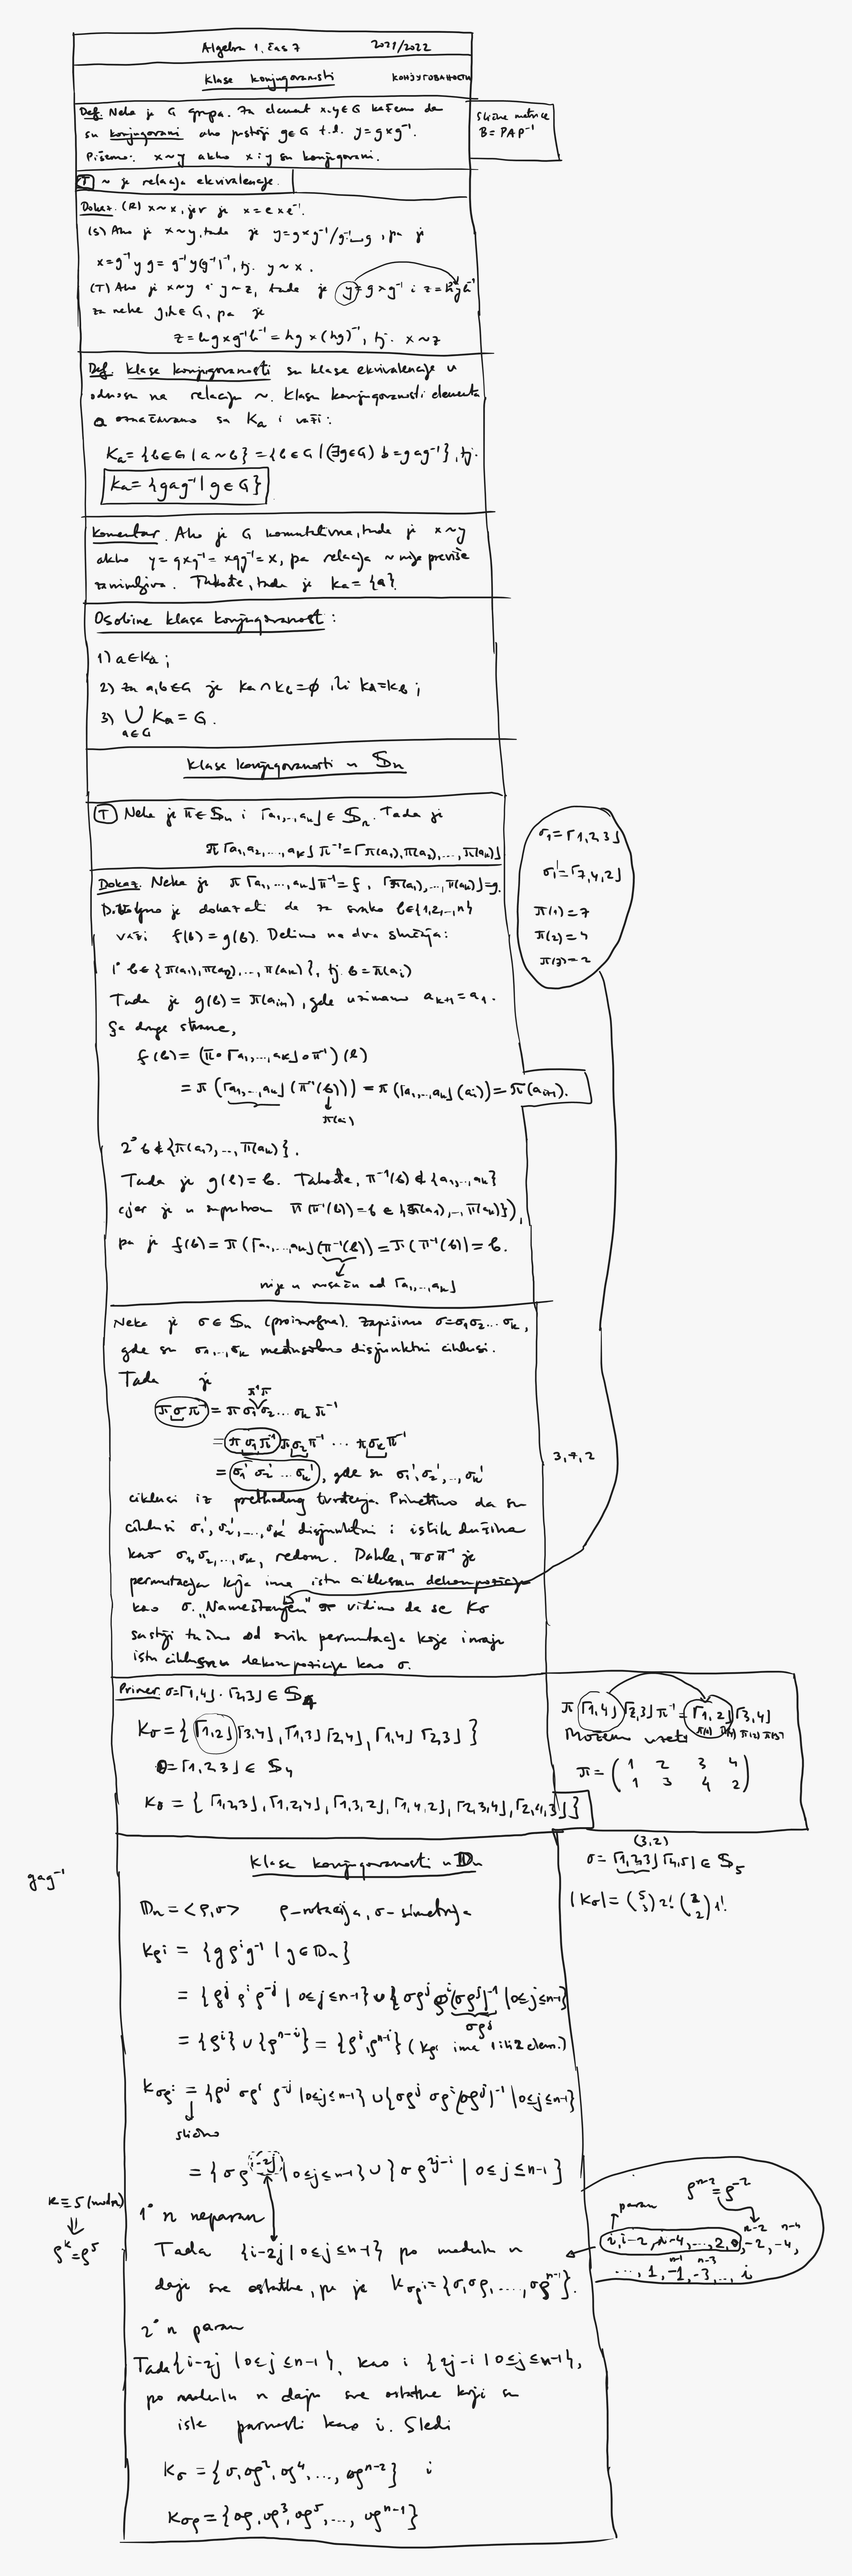 Algebra 1, čas 7 2021/2022
Klase konjugovanosti КОНЈУГОВАНОСТИ
Def. Neka je G grupa. Za element x,y∈G kažemo da
su konjugovani ako postoji g∈G t.d. y=gxg⁻¹.
Pišemo: x~y akko x i y su konjugovani.
Slične matrice
B=PAP⁻¹
(T) ~ je relacija ekvivalencije.
Dokaz. (R) x~x, jer je x=exe⁻¹.
(S) Ako je x~y, tada je y=gxg⁻¹/g⁻¹·_·g, pa je
x=g⁻¹yg=g⁻¹y(g⁻¹)⁻¹, tj. y~x.
(T) Ako je x~y i y~z, tada je y=gxg⁻¹ i z=hyh⁻¹
za neke g,h∈G, pa je
z=hgxg⁻¹h⁻¹=hgx(hg)⁻¹, tj. x~z
Def. Klase konjugovanosti su klase ekvivalencije u
odnosu na relaciju ~. Klasu konjugovanosti elementa
a označavamo sa Ka i važi:
Ka={b∈G|a~b}={b∈G|(∃g∈G) b=gag⁻¹}, tj.
Ka={gag⁻¹|g∈G}
Komentar. Ako je G komutativna, tada je x~y
akko y=gxg⁻¹=xgg⁻¹=x, pa relacija ~ nije previše
zanimljiva. Takođe, tada je Ka={a}.
Osobine klasa konjugovanosti:
1) a∈Ka;
2) za a,b∈G je Ka∩Kb=∅ ili Ka=Kb;
3) ∪ Ka=G.
a∈G
Klase konjugovanosti u 𝕊n
(T) Neka je π∈𝕊n i ⌈a₁,...,ak⌋∈𝕊n. Tada je
π⌈a₁,a₂,...,ak⌋π⁻¹=⌈π(a₁),π(a₂),...,π(ak)⌋
σ₁=⌈1,2,3⌋
σ₁'=⌈7,4,2⌋
π(1)=7
π(2)=4
π(3)=2
Dokaz. Neka je π⌈a₁,...,ak⌋π⁻¹=f, ⌈π(a₁),...,π(ak)⌋=g.
Dovoljno je dokazati da za svako b∈{1,2,...,n}
važi f(b)=g(b). Delimo na dva slučaja:
1° b∈{π(a₁),π(a₂),...,π(ak)}, tj. b=π(ai)
Tada je g(b)=π(ai+1), gde uzimamo ak+1=a₁.
Sa druge strane,
f(b)=(π∘⌈a₁,...,ak⌋∘π⁻¹)(b)
=π(⌈a₁,...,ak⌋(π⁻¹(b)))=π(⌈a₁,...,ak⌋(ai))=π(ai+1).
π(ai)
2° b∉{π(a₁),...,π(ak)}.
Tada je g(b)=b. Takođe, π⁻¹(b)∉{a₁,...,ak}
(jer je u suprotnom π(π⁻¹(b))=b∈{π(a₁),...,π(ak)}),
pa je f(b)=π(⌈a₁,...,ak⌋(π⁻¹(b))=π(π⁻¹(b))=b.
nije u nosaču od ⌈a₁,...,ak⌋
Neka je σ∈𝕊n (proizvoljna). Zapišimo σ=σ₁σ₂...σk,
gde su σ₁,...,σk međusobno disjunktni ciklusi.
Tada je
π⁻¹π
πσπ⁻¹=πσ₁σ₂...σkπ⁻¹
=πσ₁π⁻¹πσ₂π⁻¹...πσkπ⁻¹
=σ₁'σ₂'...σk', gde su σ₁',σ₂',...,σk'
3,4,2
ciklusi iz prethodnog tvrđenja. Primetimo da su
ciklusi σ₁',σ₂',...,σk' disjunktni i istih dužina
kao σ₁,σ₂,...,σk, redom. Dakle, πσπ⁻¹ je
permutacija koja ima istu ciklusnu dekompoziciju
kao σ. „Nameštanjem" π vidimo da se Kσ
sastoji tačno od svih permutacija koje imaju
istu ciklusnu dekompoziciju kao σ.
Primer. σ=⌈1,4⌋·⌈2,3⌋∈𝕊4
Kσ={⌈1,2⌋⌈3,4⌋,⌈1,3⌋⌈2,4⌋,⌈1,4⌋⌈2,3⌋}
θ=⌈1,2,3⌋∈𝕊4
Kθ={⌈1,2,3⌋,⌈1,2,4⌋,⌈1,3,2⌋,⌈1,4,2⌋,⌈2,3,4⌋,⌈2,4,3⌋}
π⌈1,4⌋⌈2,3⌋π⁻¹=⌈1,2⌋⌈3,4⌋
π(1) π(4) π(2) π(3)
Možemo uzeti
π=(1 2 3 4
1 3 4 2)
gag⁻¹
Klase konjugovanosti u 𝔻n
(3,2)
σ=⌈1,2,3⌋⌈4,5⌋∈𝕊5
|Kσ|=(5 3)2!(2 2)1!
𝔻n=<ρ,σ> ρ-rotacija, σ-simetrija
Kρi={gρⁱg⁻¹|g∈𝔻n}
={ρʲρⁱρ⁻ʲ|0≤j≤n-1}∪{σρʲρⁱ(σρʲ)⁻¹|0≤j≤n-1}
σρʲ
={ρⁱ}∪{ρⁿ⁻ⁱ}={ρⁱ,ρⁿ⁻ⁱ} (Kρi ima 1 ili 2 elem.)
Kσρi={ρʲσρⁱρ⁻ʲ|0≤j≤n-1}∪{σρʲσρⁱ(σρʲ)⁻¹|0≤j≤n-1}
slično
={σρⁱ⁻²ʲ|0≤j≤n-1}∪{σρ²ʲ⁻ⁱ|0≤j≤n-1}
k≡5(mod n)
⇓
ρᵏ=ρ⁵
1° n neparan
Tada {i-2j|0≤j≤n-1} po modulu n
daje sve ostatke, pa je Kσρi={σ,σρ,...,σρⁿ⁻¹}.
ρⁿ⁻²=ρ⁻²
paran
n-2 n-4
i,i-2,i-4,...,2,0,-2,-4,
n-1 n-3
...,1,-1,-3,...,i
2° n paran
Tada {i-2j|0≤j≤n-1}, kao i {2j-i|0≤j≤n-1},
po modulu n daju sve ostatke koji su
iste parnosti kao i. Sledi
Kσ={σ,σρ²,σρ⁴,...,σρⁿ⁻²} i
Kσρ={σρ,σρ³,σρ⁵,...,σρⁿ⁻¹}